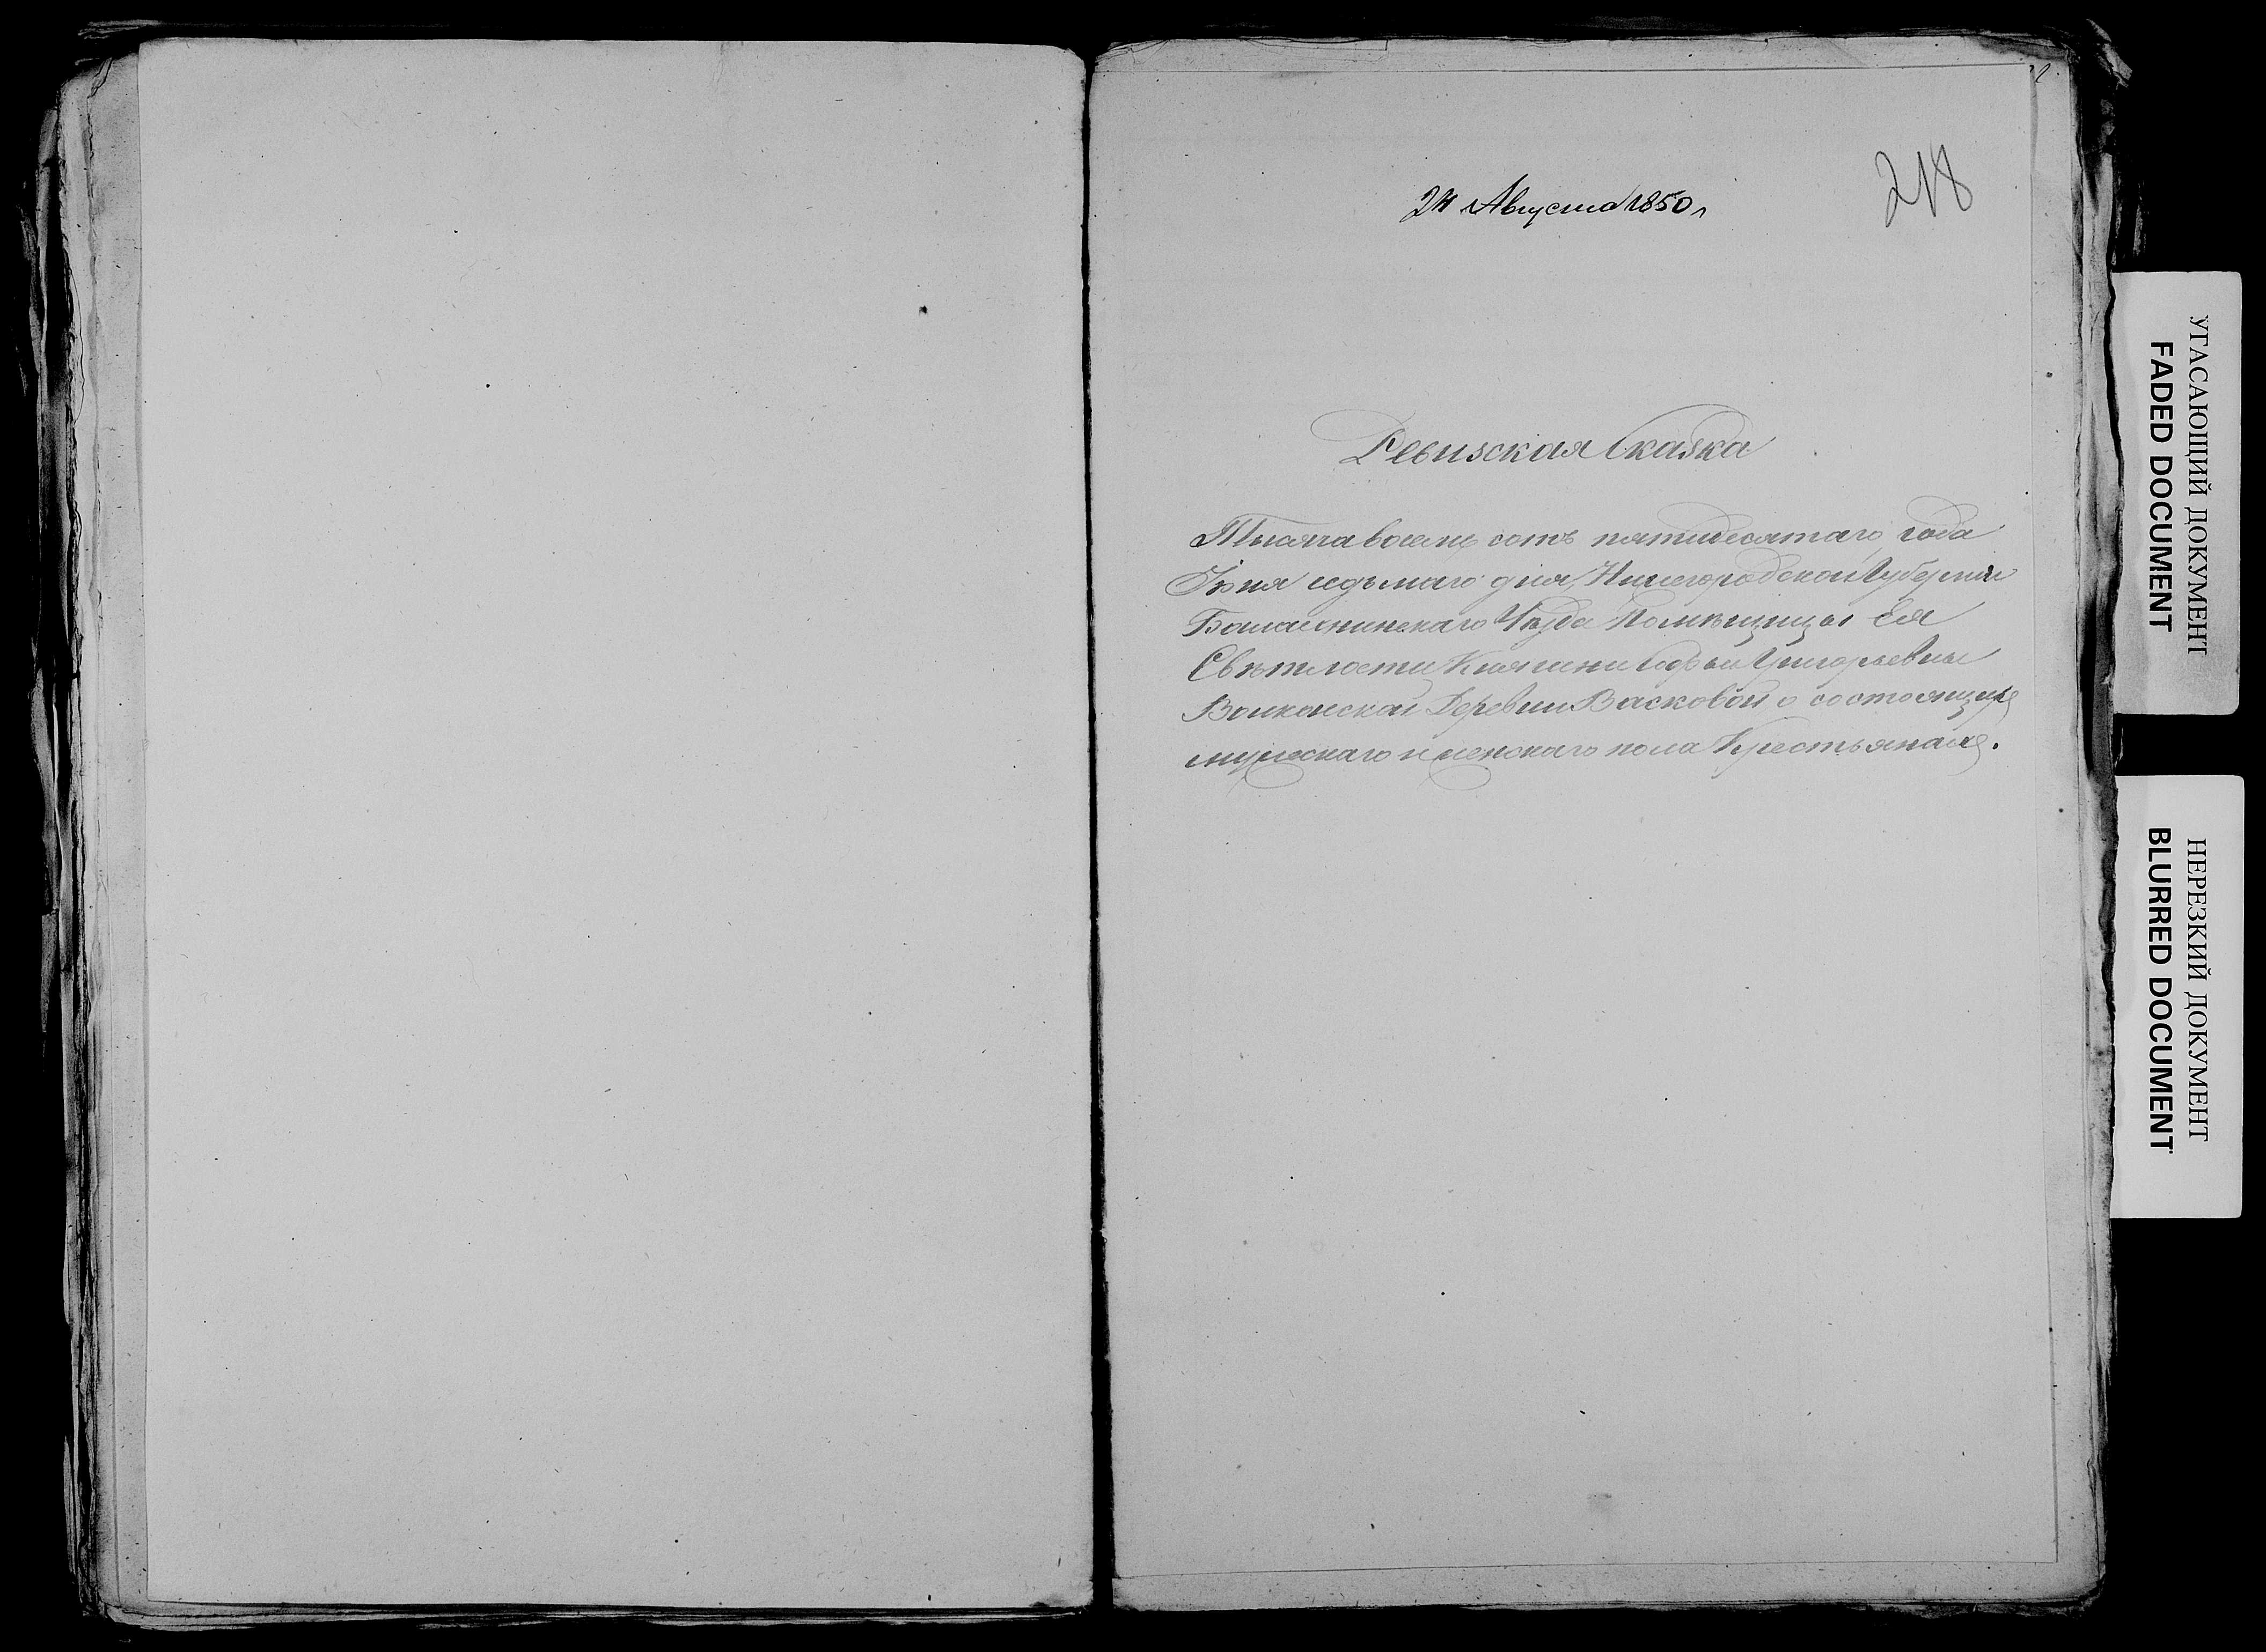 24 Августа 1850 г
218
Ревизская Сказка
Тысяча восемь сотъ пятидесятаго года
Іюня седьмаго дня, Нижегородской Губерніи
Балахнинскаго Уѣзда Помѣщицы Ея
Свѣтлости Княгини Софьи Григорьевны
Волконской Деревни Васковой о состоящихъ
мужескаго и женскаго пола Крестьянахъ.
УГАСАЮЩИЙ ДОКУМЕНТ
FADED DOCUMENT
НЕРЕЗКИЙ ДОКУМЕНТ
BLURRED DOCUMENT